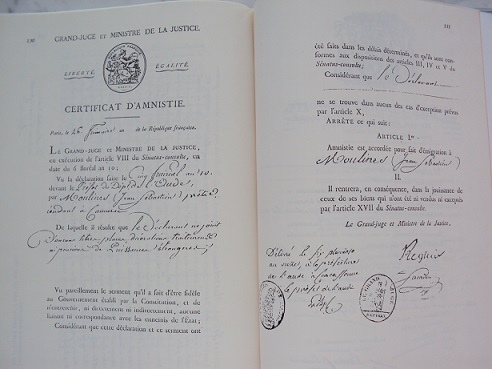 GRAND-JUGE ET MINISTRE DE LA JUSTICE.
LIBERTÉ. ÉGALITÉ.
CERTIFICAT D'AMNISTIE.
Paris, le 26 de la République française.
LE GRAND-JUGE ET MINISTRE DE LA JUSTICE,
en exécution de l'article VIII du Sénatus-consulte, en
date du 6 floréal an 10;
Vu la déclaration faite le
devant le Préfet du Dépt de l'Aude,
par Moulines (Jean Sébastien) prêtre,
De laquelle il résulte que le Déclarant
Vu pareillement le serment qu'il a fait d'être fidèle
au Gouvernement établi par la Constitution, et de
n'entretenir, ni directement ni indirectement, aucune
liaison ni correspondance avec les ennemis de l'État;
Considérant que cette déclaration et ce serment ont
été faits dans les délais déterminés, et qu'ils sont con-
formes aux dispositions des articles III, IV et V du
Sénatus-consulte;
Considérant que le Déclarant
ne se trouve dans aucun des cas d'exception prévus
par l'article X,
ARRÊTE ce qui suit:
ARTICLE Ier
Amnistie est accordée pour fait d'émigration à
Moulines (Jean Sébastien)
II.
Il rentrera, en conséquence, dans la jouissance de
ceux de ses biens qui n'ont été ni vendus ni exceptés
par l'article XVII du Sénatus-consulte.
Le Grand-Juge et Ministre de la Justice,
Regnier